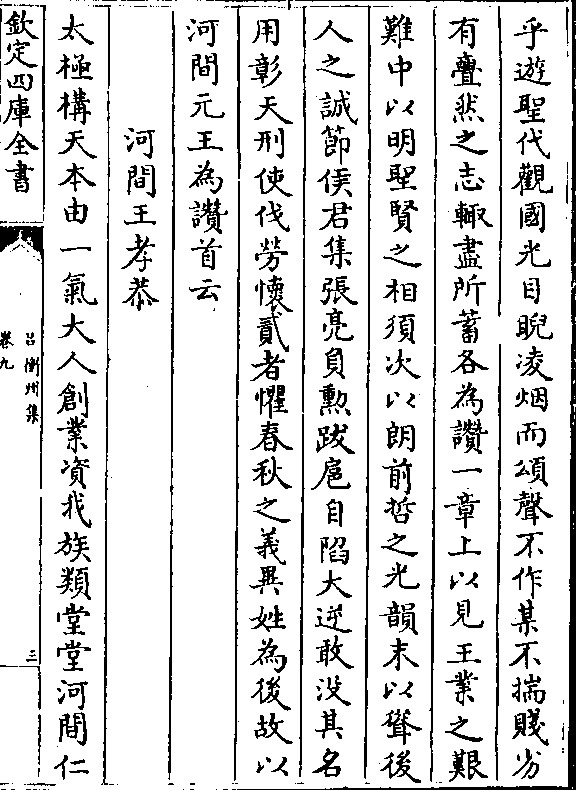 乎遊聖代觀國光目睨凌烟而頌聲不作某不揣賤劣
有亹然之志輙盡所蓄各為讚一章上以見王業之艱
難中以明聖賢之相須次以朗前哲之光韻末以聳後
人之誠節侯君集張亮負勲跋扈自陷大逆敢没其名
用彰天刑使伐勞懷貳者懼春秋之義異姓為後故以
河間元王為讚首云
河間王孝恭
太極構天本由一氣大人創業資我族類堂堂河間仁
欽定四庫全書
吕衡州集
卷九
三